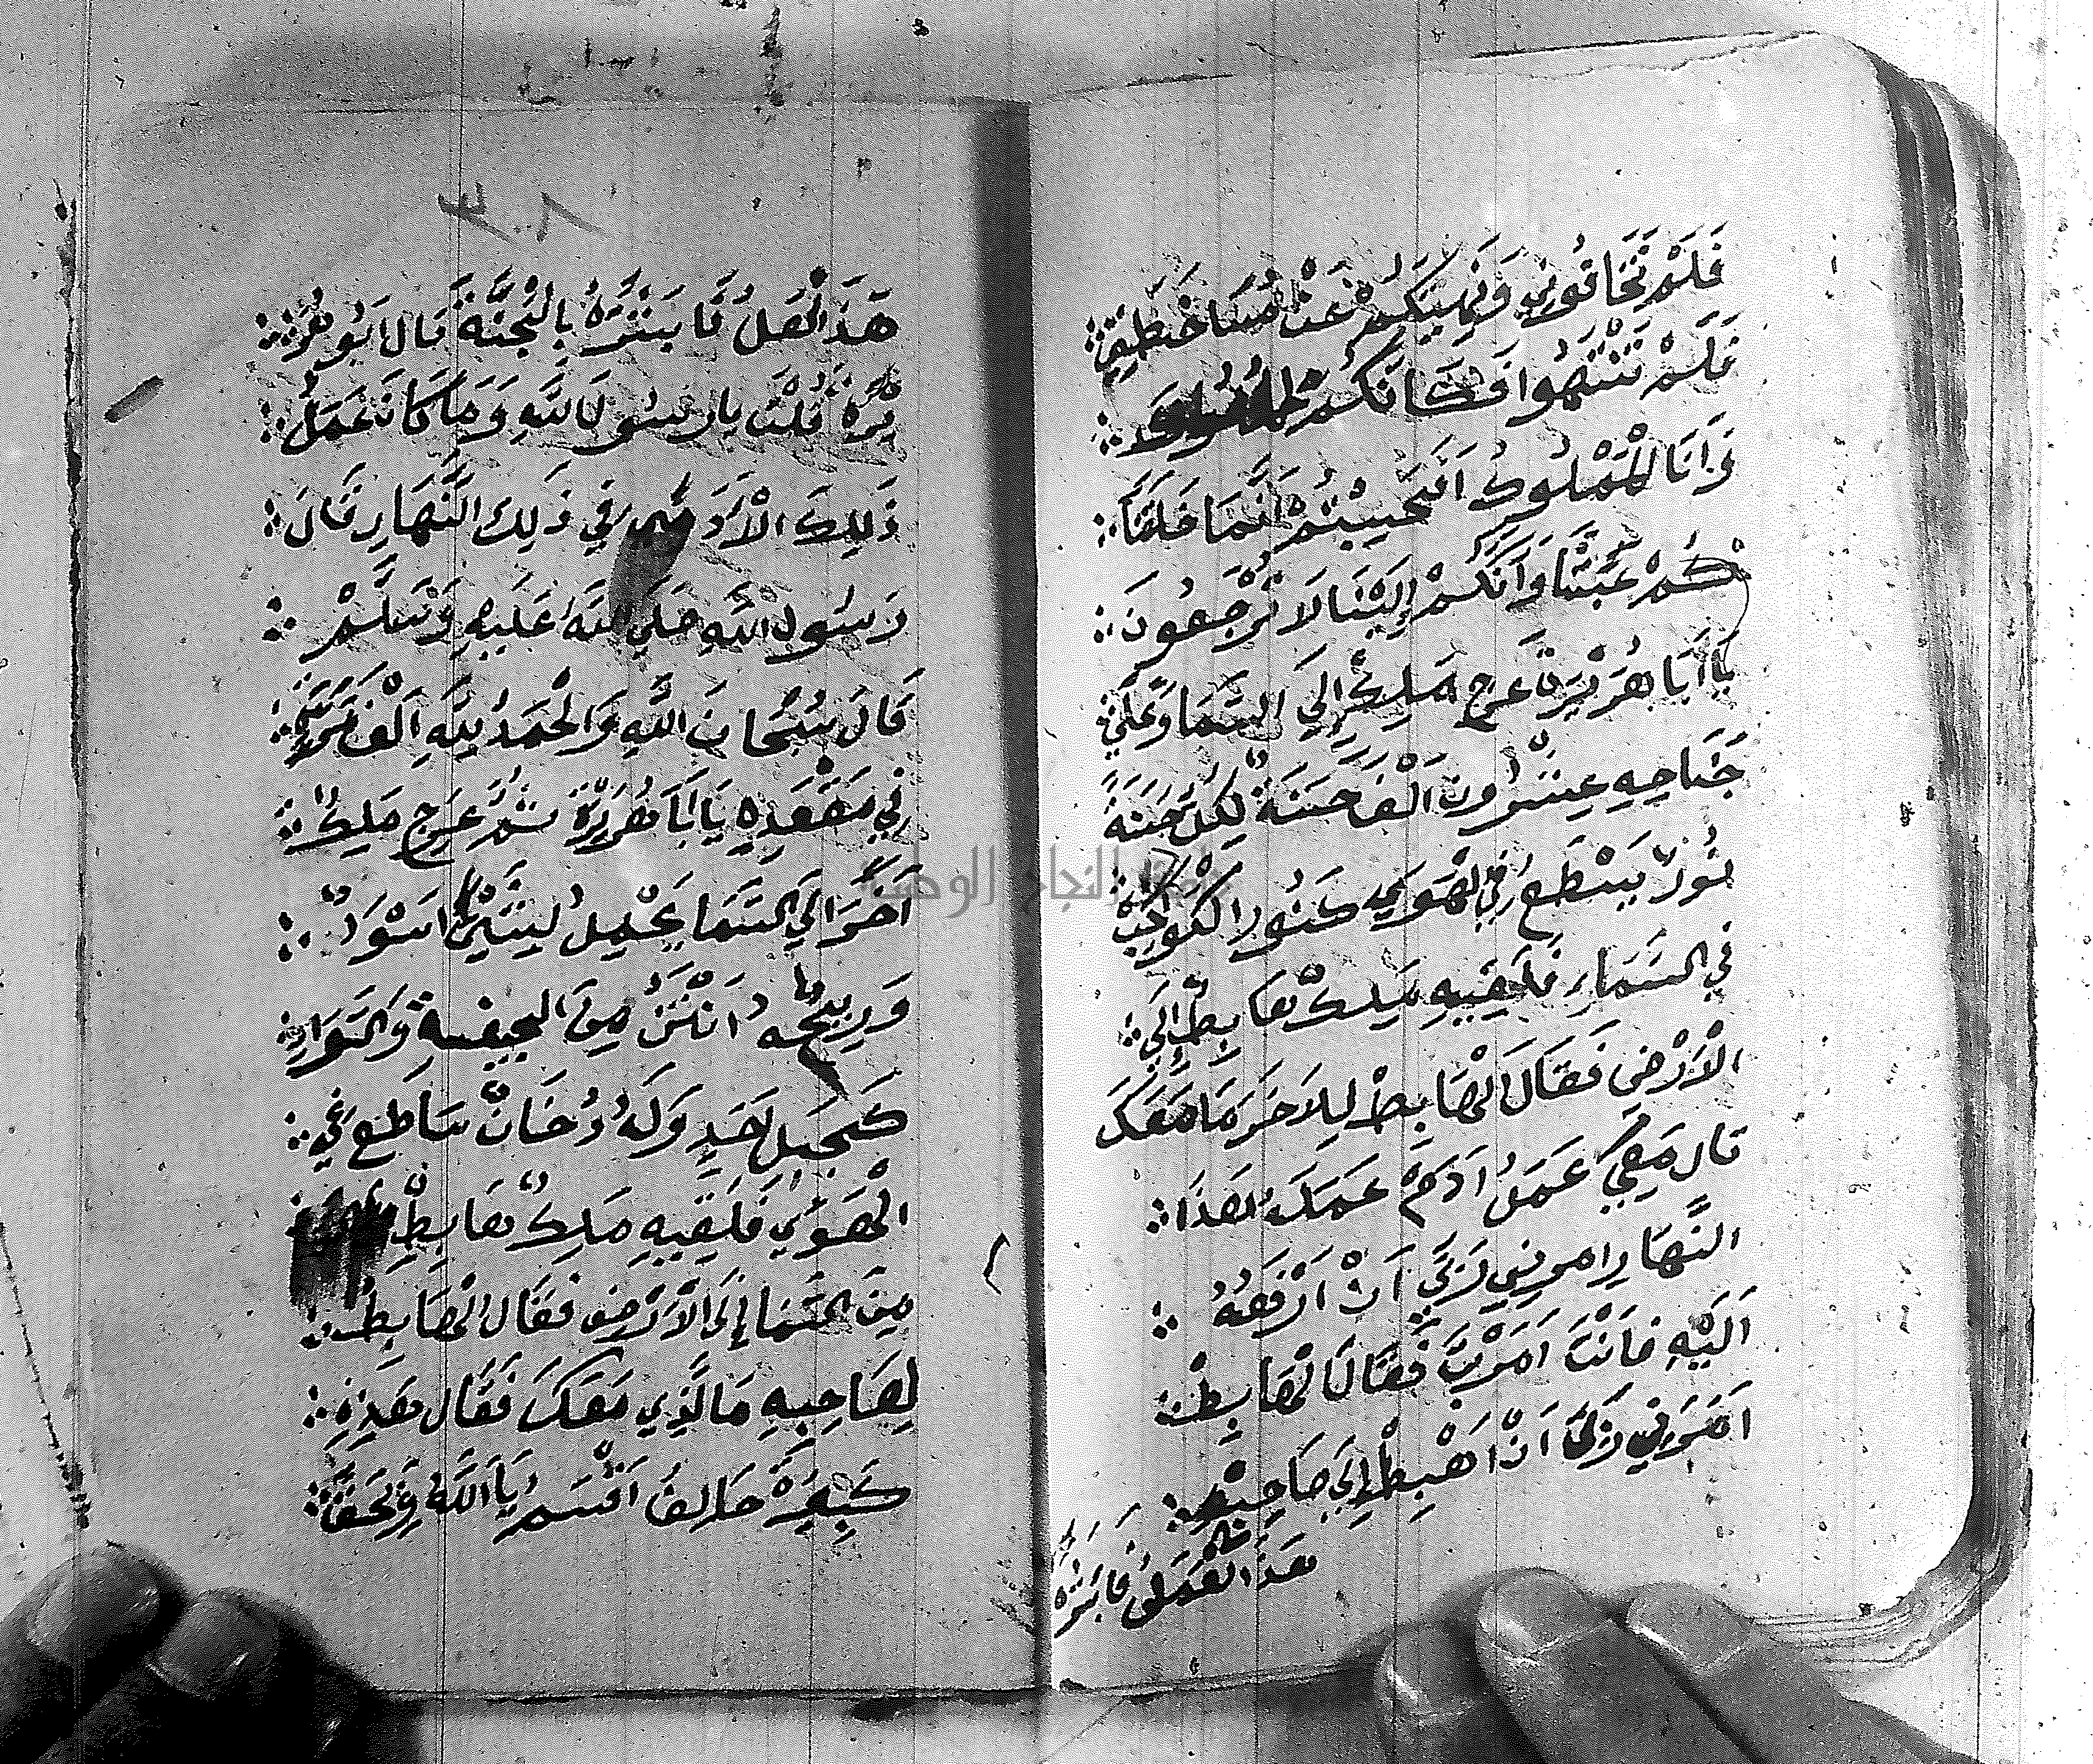 فَلَمْ تَخَافُونِي وَنَهَيْتُكُمْ عَنْ مُسَاخَطَتِي
فَلَمْ تَنْتَهُوا فَكَانَكُمْ الملوك
وَاَنَا الْمَمْلُوكُ اَفَحَسِبْتُمْ اَنَّمَا خَلَقْنَا
كُمْ عَبَثًا وَاَنَّكُمْ اِلَيْنَا لَا تُرْجَعُونَ
يَا اَبَا هُرَيْرَة عَرَجَ مَلِكٌ اِلَي السَّمَا وَعَلَي
جَنَاحِهِ عِشْرُونَ اَلْفَ حَسَنَةٌ لِكُلِ حَسَنَةٍ
نُورٌ يَسْطَعُ فِي الْهَوَي كَنُورِ الْكَوْكَبْ
فِي السَّمَاءِ فَلَقِيَهِ مَلِكْ هَابِطٌ اِلَي
الْاَرْضِ فَقَالَ الْهَابِطْ لِلاَخَرَ مَا مَعَكَ
قال مَعِي عَمَلُ اَدَمَ عَمَلَهُ هَذَا
النَّهَارِ امرنِي رَبِّي اَنْ اَرْفَعَهُ
اَلَيْهِ فَاَنْتَ اَمَرْتَ فَقَالَ الْهَابِطْ
اَمَرَنِي رَبِّي اَنْ اَهْبِطْ اِلَي صَاحِبِ
هَذَا الْعَمَلِ فابَشِّرُهُ
٣٠٨
هَذَا الْعَمَلُ فَابَشِّرُهُ بِالْجَنَّةَ قَالَ اَبُو هُرَ
يْرَهُ قُلْتُ يا رسُولَ اللَّهِ وَمَا كَانَ عَمَلُ
ذَلِكَ الْاَدَمِي فِي ذَلِكَ النَّهَارِ قَالَ
رَسُولُ اللَّهِ صَلَي اللَّهُ عَلَيْهِ وَسَلَّمْ
قَالَ سُبْحَانَ اللَّهِ وَالْحَمْدُ لِلَّهِ اَلْفَ مَرَّةٍ
فِي مَقْعَدِهِ يَا اَبَا هُرَيْرَةَ ثُمَّ عَرَجَ مَلِكٌ
اَخَرَ اِلَي السَّمَا يَحْمِلُ لِشَيْءٍ اَسْوَدٌ
وَرِيحُهُ اَنْتَنُ مِنَ الجِيفَةِ وَالسَّوَادِ
كَجَبَلِ اَحَدٍ وَلَهُ دُخَانٌ سَاطِعٌ فِي
الْهَوَي فَلَقِيَهِ مَلِكٌ هَابِطٌ
مِنَ السَّمَا اِلَي الْاَرْضِ فَقَالَ الْهَابِطُ
لِصَاحِبِهِ مَالَّذِي مَعَكَ فَقَالَ هَذِهِ
كَبِيرَةٌ حَالِفُ اَقْسَمَ بِاَاللَّهِ وَبَحَقِّ